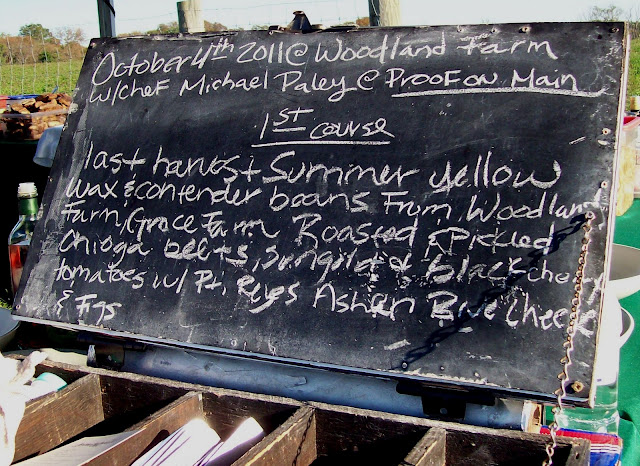 October 4th 2011 @ Woodland Farm
w/chef Michael Paley @ Proof on Main
1st course
last harvest Summer yellow
wax & contender beans From Woodland
Farm, Grace Farm Roasted & Pickled
Chioga beets, & black cherry
tomatoes w/ Pt. Reyes Ashen Blue Cheese
& Figs